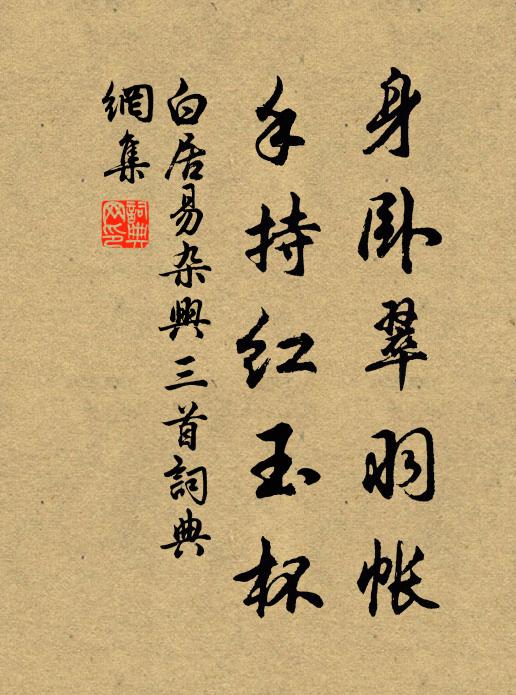 身臥翠羽帳
手持红玉杯
白居易杂興三首詞典
網集
詞典
网印